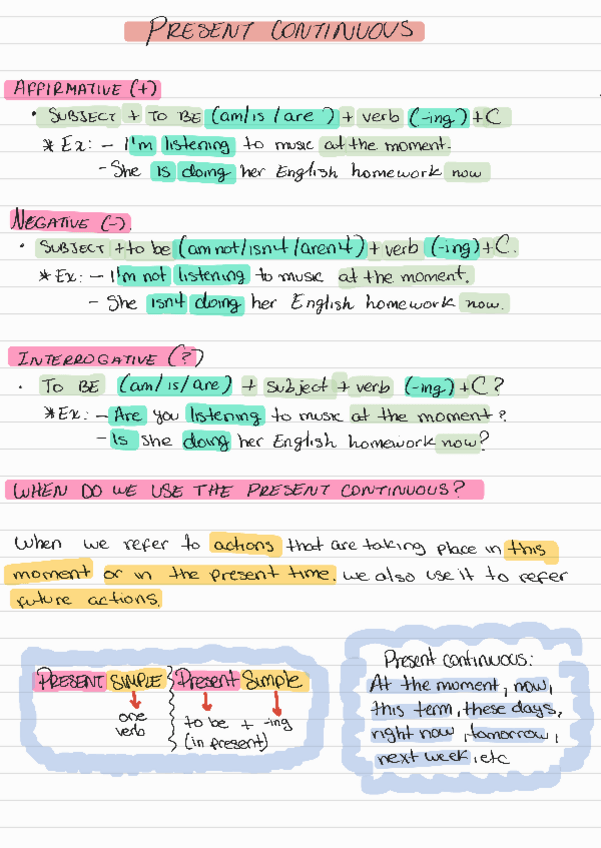 PRESENT CONTINUOUS
AFFIRMATIVE (+)
• SUBJECT + TO BE (am/is/are) + verb (-ing) + C
* Ex: - I'm listening to music at the moment.
- She is doing her English homework now
NEGATIVE (-).
• SUBJECT + to be (am not/isn't/aren't) + verb (-ing) + C.
* Ex: - I'm not listening to music at the moment.
- She isn't doing her English homework now.
INTERROGATIVE (?)
• TO BE (am/is/are) + subject + verb (-ing) + C?
* Ex: - Are you listening to music at the moment?
- Is she doing her English homework now?
WHEN DO WE USE THE PRESENT CONTINUOUS?
When we refer to actions that are taking place in this
moment or in the present time. we also use it to refer
future actions.
PRESENT SIMPLE
one
verb
Present Simple
to be + -ing
(in present)
Present continuous:
At the moment, now,
this term, these days,
right now, tomorrow,
next week, etc